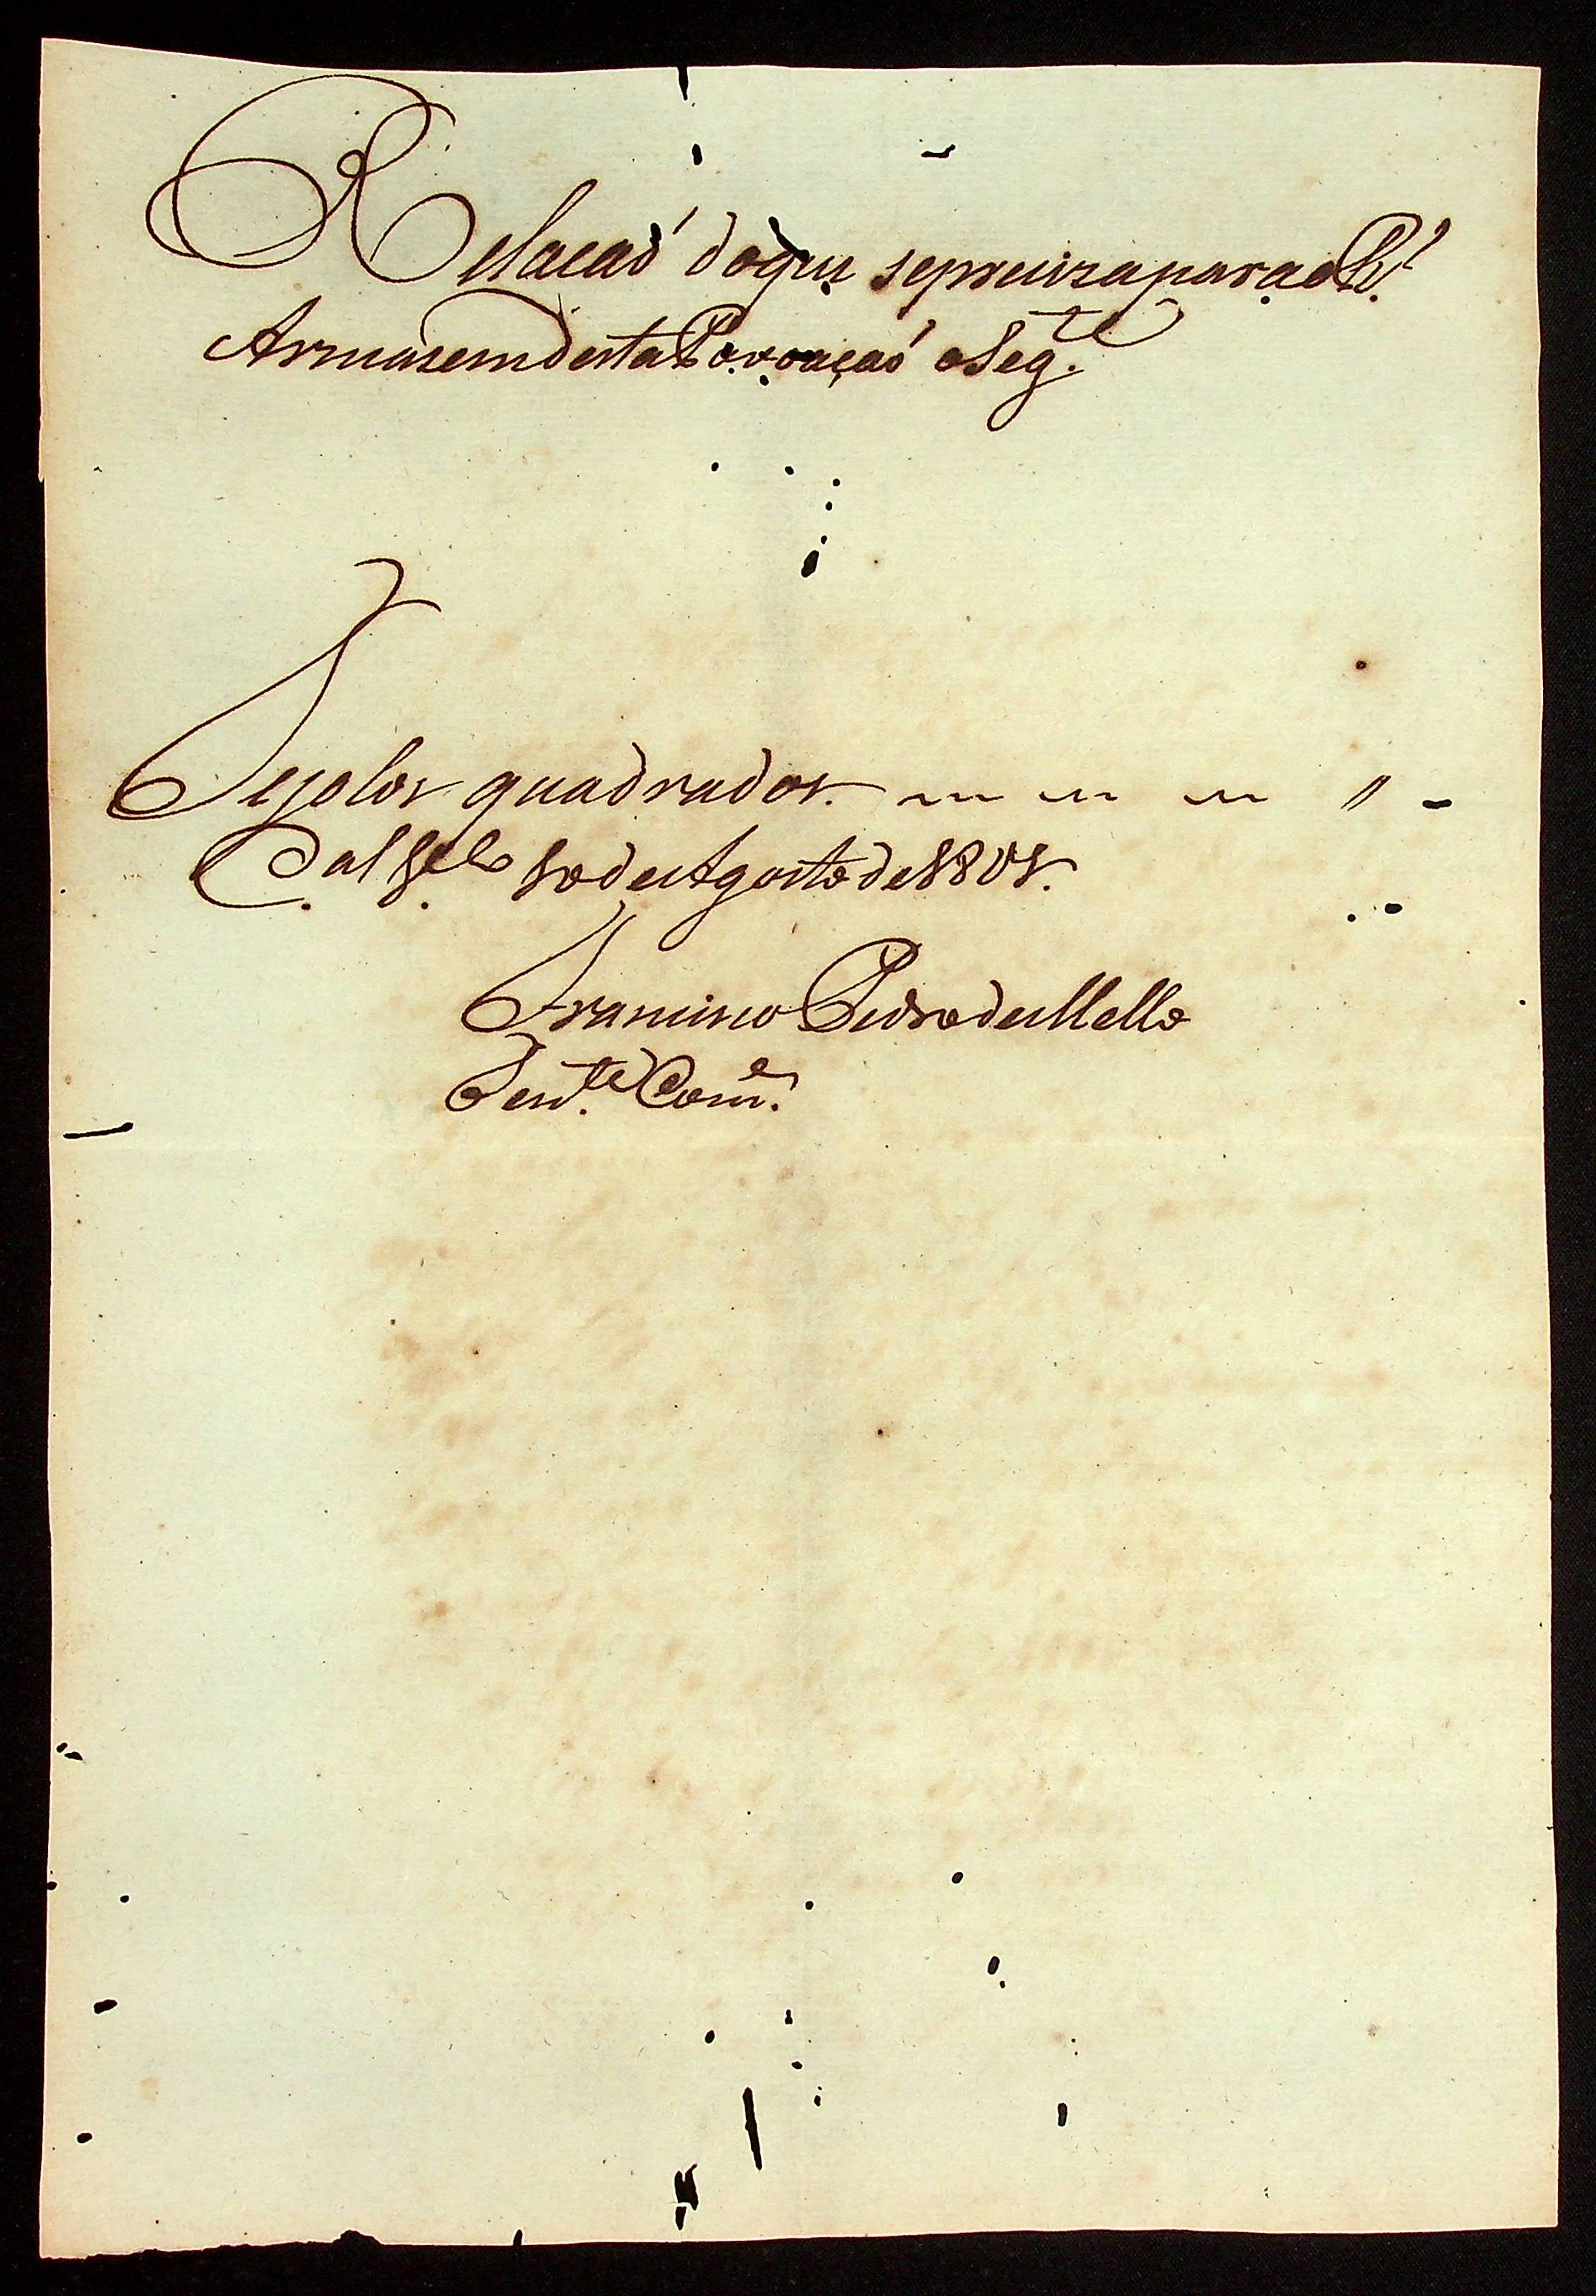 Relacaõ do que se precisa para o R.l
Armasem desta Povoaçaõ o Seg.te
Tejolos quadrados. ~ ~ ~ "
de Agosto de 1801.
Francisco Pedro de Mello
Ten.te Com.e